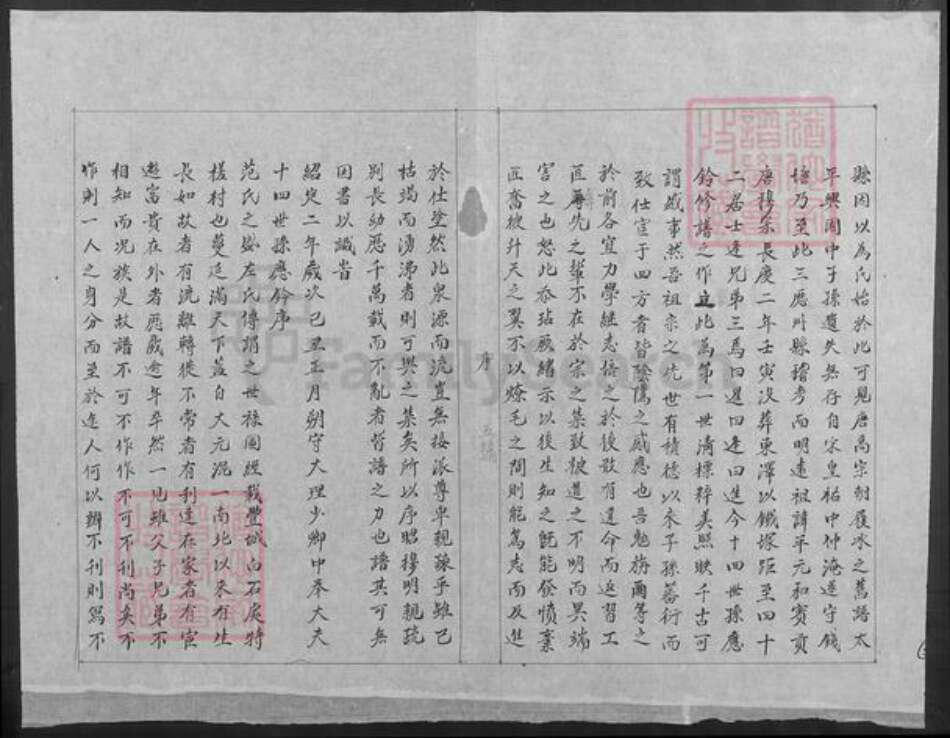 縣因以為氏始於此可見唐高宗封履冰之舊譜太
平興國中子孫遺失無存自宋皇祐中仲淹遂守錢
塘乃至此三應州縣稽考而明遠祖諱平元和賓貢
唐穆宗長慶二年壬寅沒葬東澤以鐵塚距至四十
二居士逢兄弟三焉曰遲曰逢曰進今十四世孫應
鈴修譜之作並此為第一世清標粹美照映千古可
謂感事然吾祖宗之先世有積德以來子孫蕃衍而
致仕宦于四方者皆陰隲之感應也吾勉旃爾等之
於前各宜力學繼志培之於後教有違命而返習工
匠辱先之輩不在於宗之集致被道之不明而異端
害之也恕此忝玷厥緒示以後生知之旣能發憤棄
匠奮彼升天之翼不以燎毛之間則能篤志而及進
序
於仕塗然此泉源而流豈無接派尊卑親諫乎雖已
枯竭而湧沸者則可與之集矣所以序昭穆明親疏
別長幼歷千萬載而不亂者皆譜之力也譜其可無
因書以識岩
紹定二年歲次己丑正月朔守大理少卿中奉大夫
十四世孫應鈴序
范氏之盛左氏傳謂之世祿國經載豐城白石戾特
槎村也蔓延滿天下蓋自大元混一南北以來有生
長如故者有流離轉徙不常者有利達在家者有宦
遊富貴在外者歷歲逾年卒然一見雖父子兄弟不
相知而况族是故譜不可不作作不可不刊尚矣不
作則一人之身分而至於途人何以辨不刊則寫不